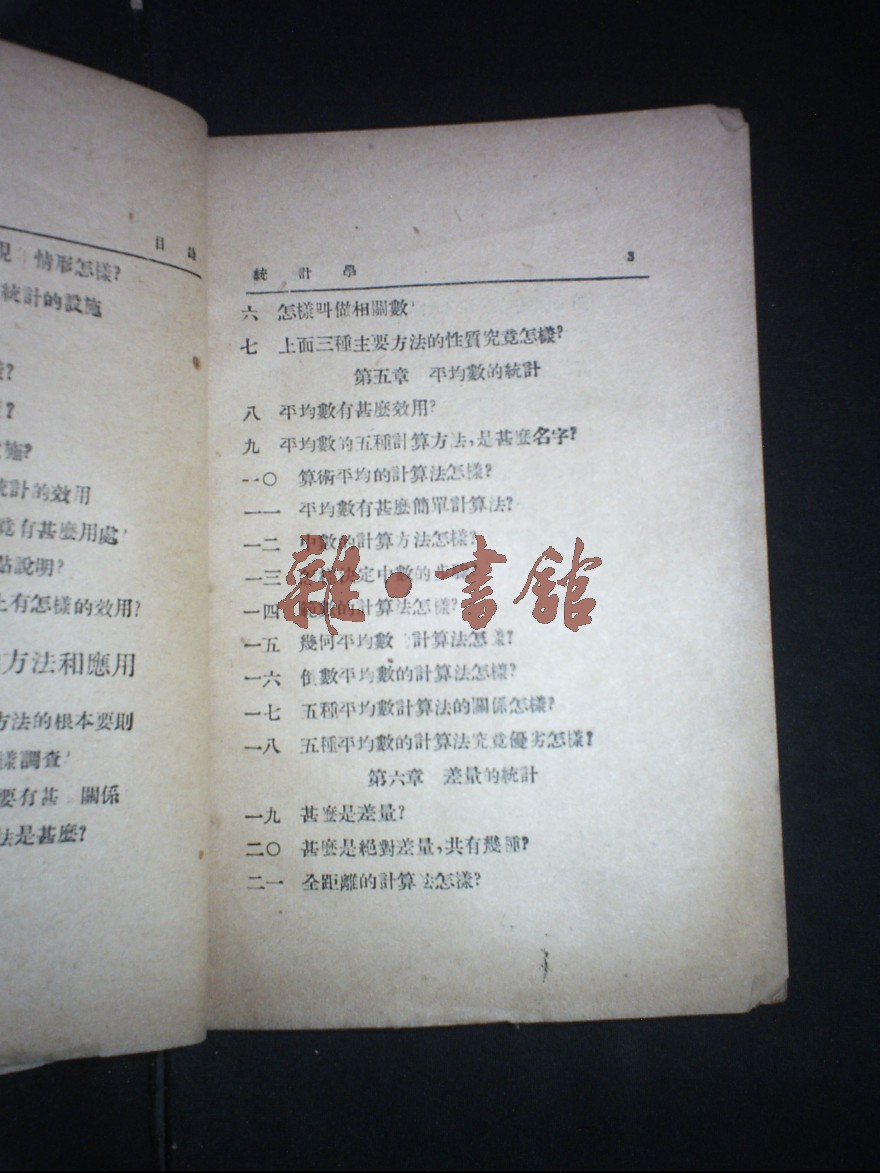 目
情形怎樣?
統計的設施
?
?
施?
統計的效用
有甚麼用處
點說明?
上有怎樣的效用?
方法和應用
方法的根本要則
樣調查
要有甚 關係
法是甚麼?
統計學 3
六 怎樣叫做相關數
七 上面三種主要方法的性質究竟怎樣?
第五章 平均數的統計
八 平均數有甚麼效用?
九 平均數的五種計算方法,是甚麼名字?
一〇 算術平均的計算法怎樣?
一一 平均數有甚麼簡單計算法?
一二 中數的計算方法怎樣?
一三 決定中數的
一四 的計算法怎樣?
一五 幾何平均數 計算法怎樣?
一六 倒數平均數的計算法怎樣?
一七 五種平均數計算法的關係怎樣?
一八 五種平均數的計算法究竟優劣怎樣?
第六章 差量的統計
一九 甚麼是差量?
二〇 甚麼是絕對差量,共有幾種?
二一 全距離的計算法怎樣?
雜·書館